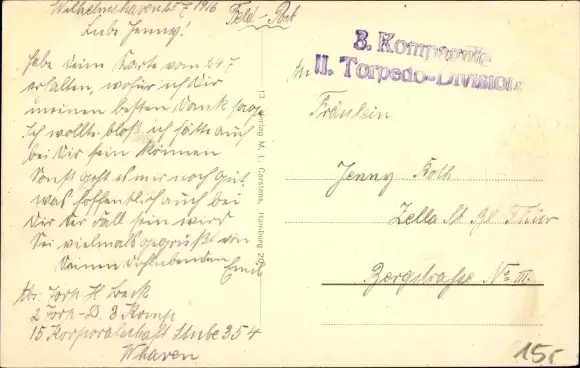 Wilhelmshaven 7 1916
Feld-Post
Liebe Jenny!
Habe deine Karte vom 24 7
erhalten, wofür ich Dir
meinen besten Dank sage
Ich wollte bloß ich hätte auch
bei Dir sein können
Sonst geht es mir noch gut,
was hoffentlich auch bei
Dir der Fall sein wird
Sei vielmals gegrüßt von
Deinem dichliebenden Emil
Abs: Torp. H
2 Torp-D. 3 Komp
15 Korporalschaft Stube 354
Whaven
13 Verlag M. L. Carstens, Hamburg 20
3. Kompagnie
II. Torpedo-Division
An
Fräulein
Jenny Roth
Zella St Bl Thür
Bergstrasse No III.
15,